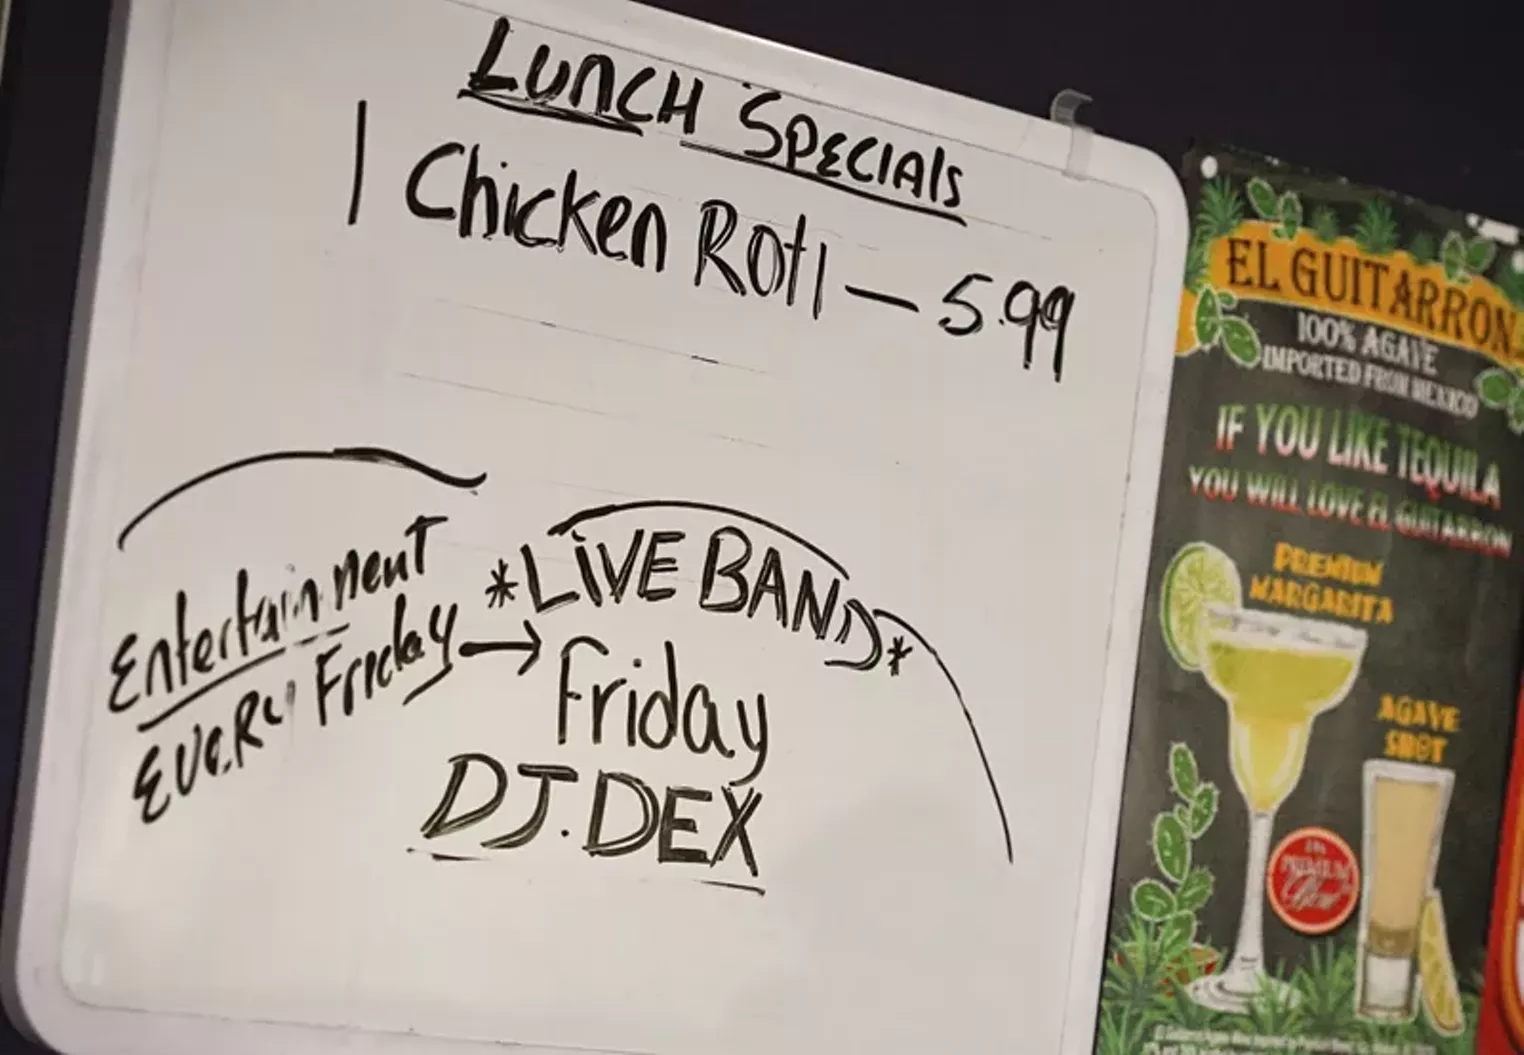 LUNCH SPECIALS
1 Chicken Roti — 5.99
Entertainment
EVERY Friday →
*LiVE BAND*
Friday
DJ.DEX
EL GUITARRON
100% AGAVE
IMPORTED FROM MEXICO
IF YOU LIKE TEQUILA
YOU WILL LOVE EL GUITARRON
PREMIUM
MARGARITA
AGAVE
SHOT
PREMIUM